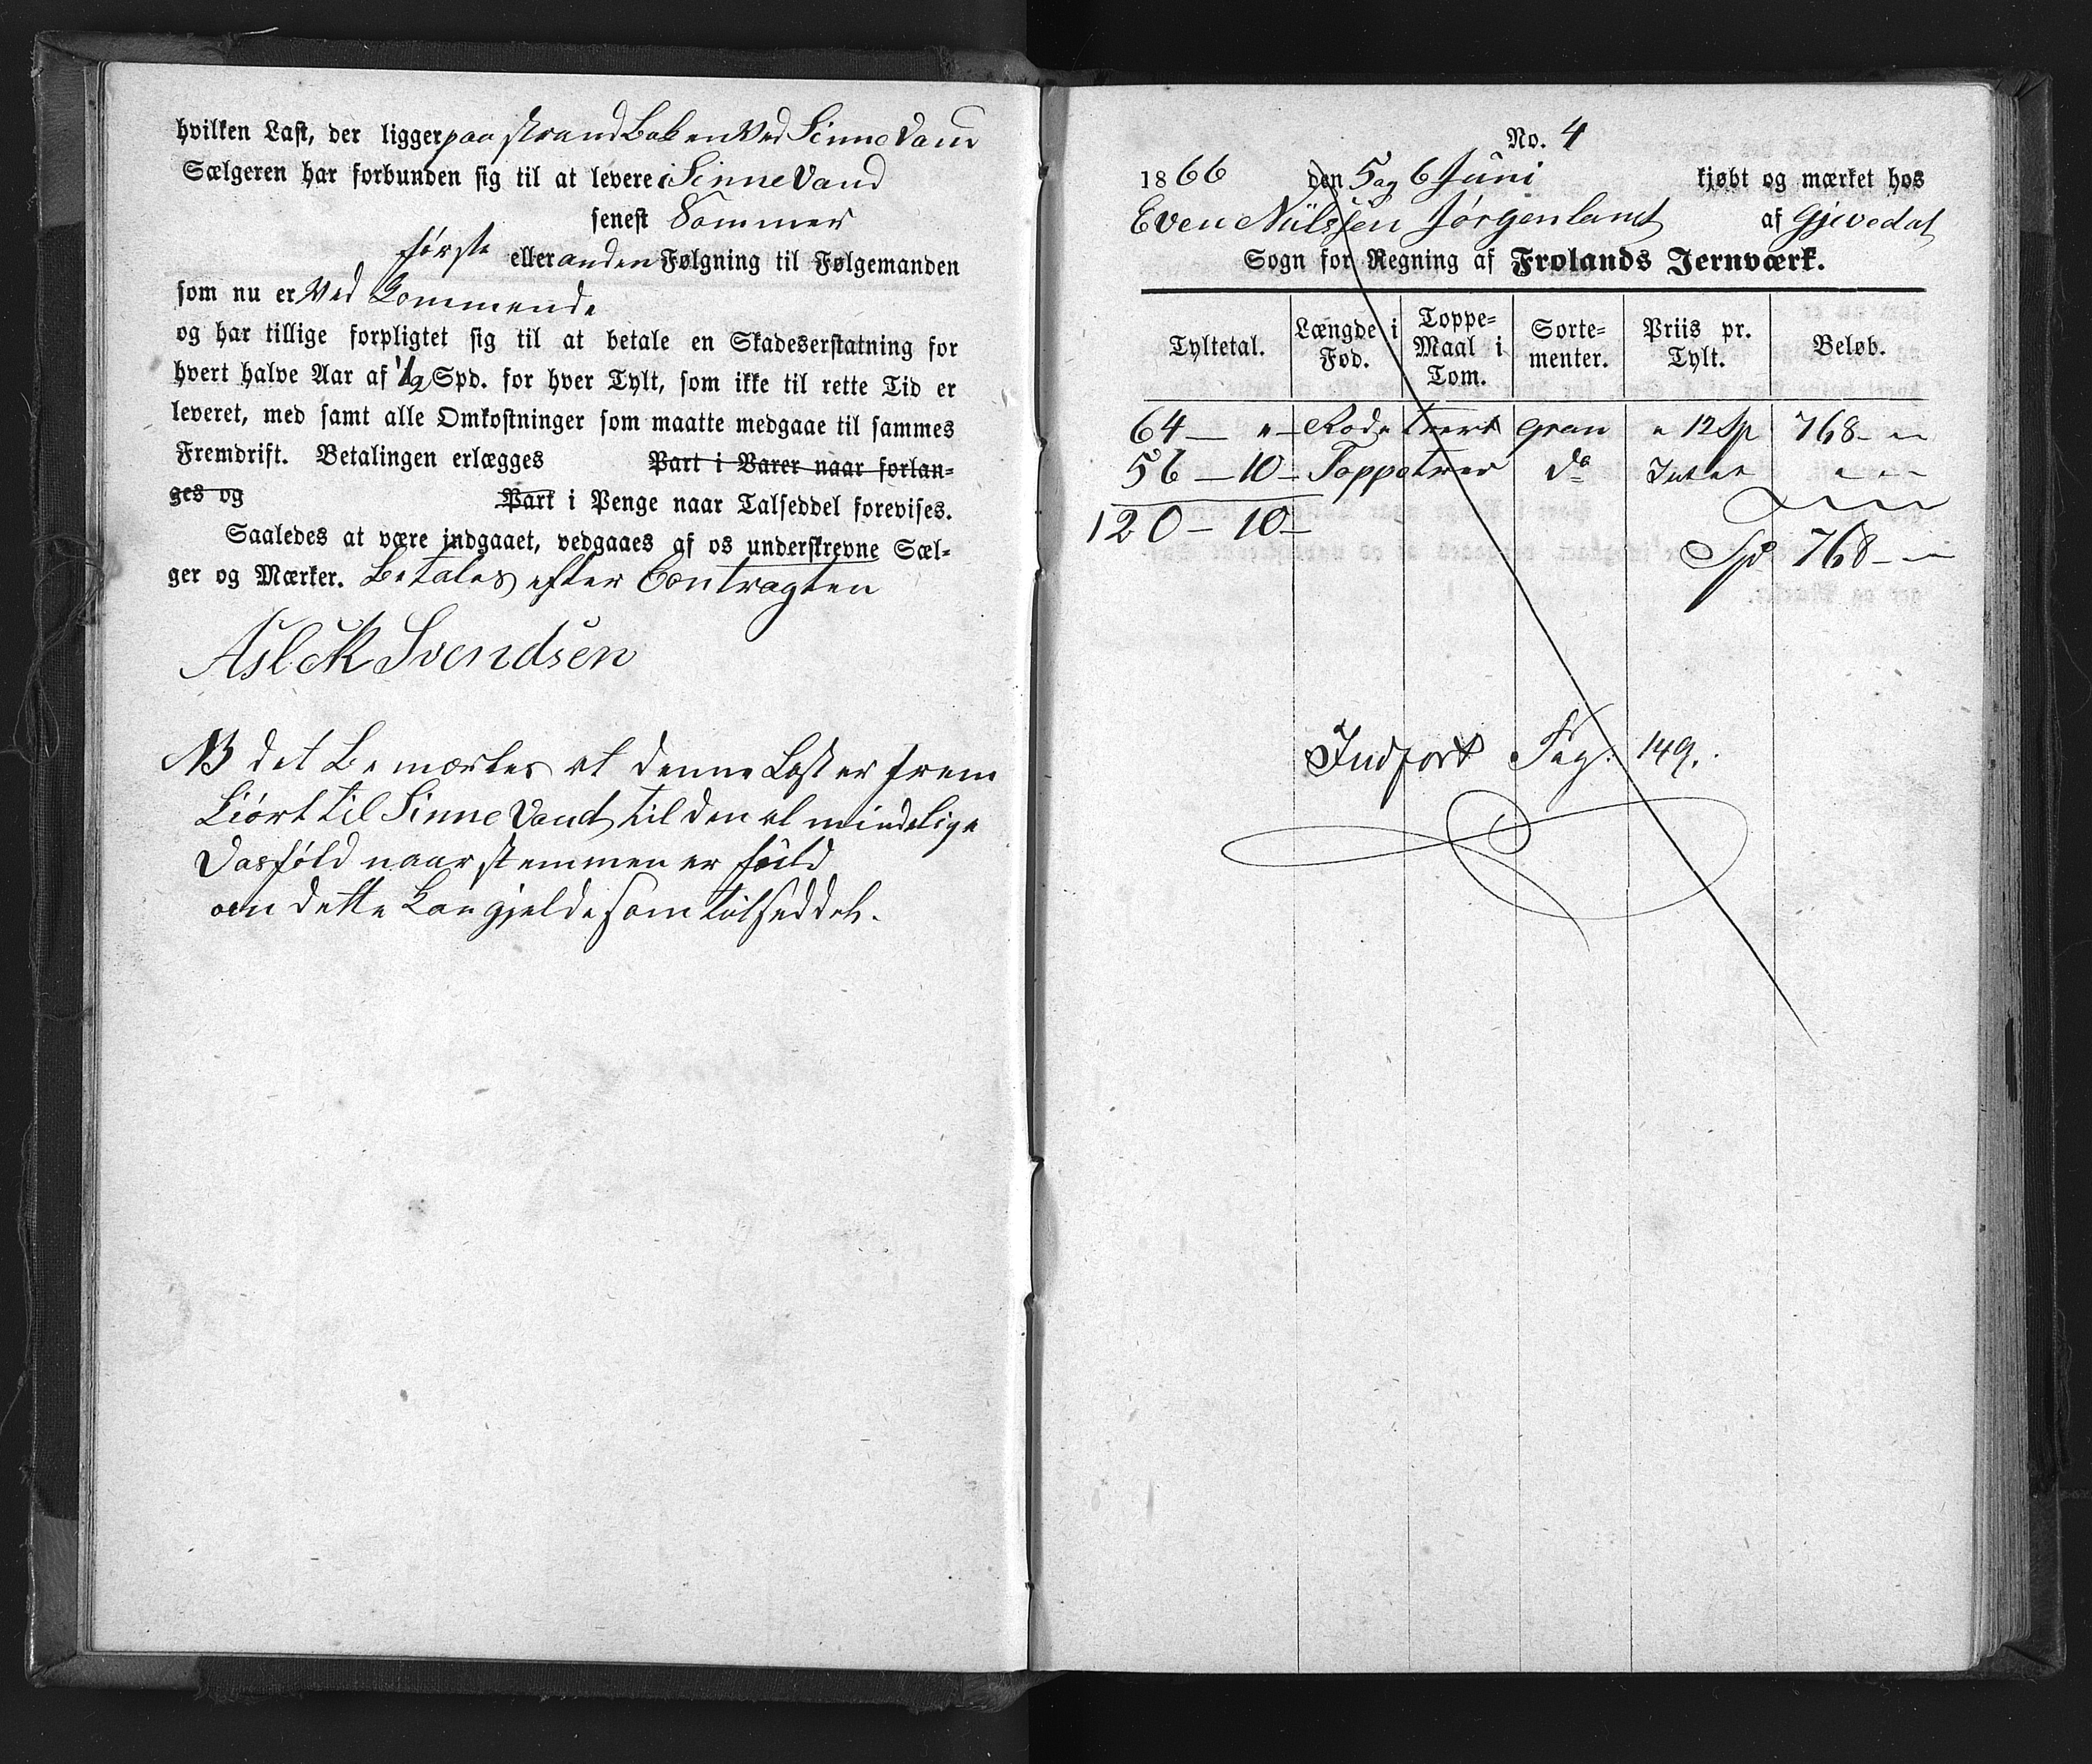 hvilken Last, der ligger paa strand Baken Ved Sinne Vand
Sælgeren har forbunden sig til at levere i Sinne Vand
senest Sommer
første eller anden Følgning til Følgemanden
som nu er Ved Kommende
og har tillige forpligtet sig til at betale en Skadeserstatning for
hvert halve Aar af 1/2 Spd. for hver Tylt, som ikke til rette Tid er
leveret, med samt alle Omkostninger som maatte medgaae til sammes
Fremdrift. Betalingen erlægges Part i Varer naar forlan-
ges og Part i Penge naar Talseddel forevises.
Saaledes at være indgaaet, vedgaaes af os underskrevne Sæl-
ger og Mærker. Betales efter Contragten
Aslak Svendsen
NB det Bemærkes at denne Last er frem
Kiørt til Sinne Vand til den almindelige
Vasføld naar stemmen er füld
dette Kan gjelde som talseddel.
No. 4
1866 den 5 og 6 Juni kjøbt og mærket hos
Even Nülssen Jørgenlamt af Gjevedal
Sogn for Regning af Frolands Jernværk.
Tyltetal. Længde i Fod. Toppe-Maal i Tom. Sorte-menter. Priis pr. Tylt. Beløb.
64 — " — Rodetrært gran a 12 Sp 768 - "
56 — 10 — Toppetrær do Intet " "
120 — 10 —
Spd 768 - "
Indført Pag. 149.